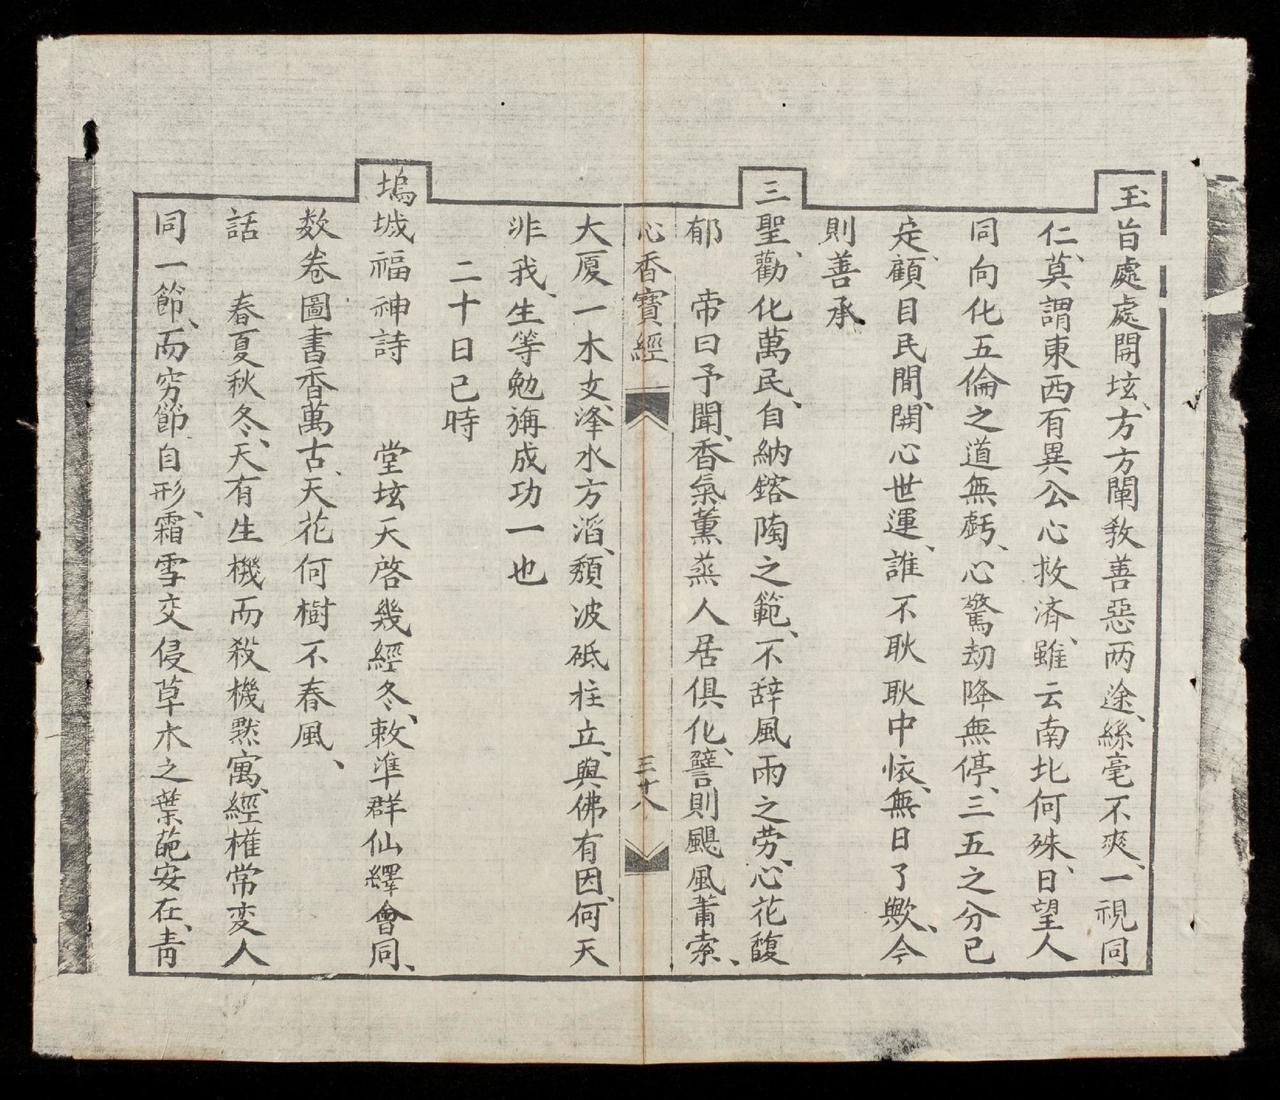 玉旨處處開坛、方方闡教善惡两途、絲毫不爽、一視同
仁、莫謂東西有異公心救济、雖云南北何殊、日望人
同向化五倫之道無虧、心驚刼降無停、三五之分已
定、顧目民間、開心世運、誰不耿耿中怀、無日了歟、今
則善承
三聖、勸化萬民、自納鎔陶之範、不辞風雨之劳、心花馥
郁　帝曰予聞、香氣薰蒸人居俱化、譬則颶風萧索、
心香寶經　三十八
大厦一木支、洚水方滔、頹波砥柱立、與佛有因、何天
非我、生等勉旃成功一也
二十日巳時
塢城福神詩　堂坛天啓幾經冬、敕準群仙繹會同、
数卷圖書香萬古、天花何樹不春風、
話　春夏秋冬、天有生機而殺機黙寓、經權常变人
同一節、而穷節自形、霜雪交侵草木之葉葩安在、青